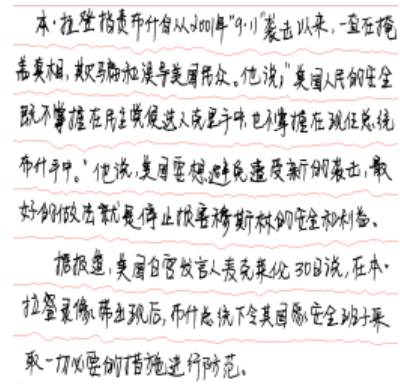 本·拉登指责布什自从2001年“9·11”袭击以来，一直在掩
盖真相，欺骗和误导美国民众。他说，“美国人民的安全
既不掌握在民主党候选人克里手中，也不掌握在现任总统
布什手中。”他说，美国要想避免遭受新的袭击，最
好的做法就是停止损害穆斯林的安全和利益。
据报道，美国白宫发言人麦克莱伦30日说，在本·
拉登录像带出现后，布什总统下令其国家安全班子采
取一切必要的措施进行防范。